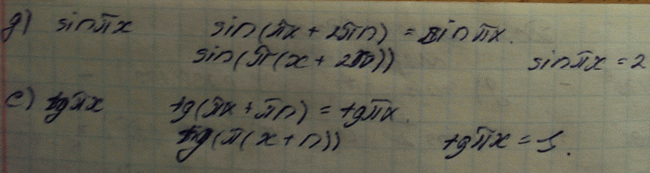 д) sin πx sin(πx + 2πn) = sin πx.
sin(π(x + 2n)) sin πx = 2
е) tg πx tg(πx + πn) = tg πx.
tg(π(x + n)) tg πx = 1.